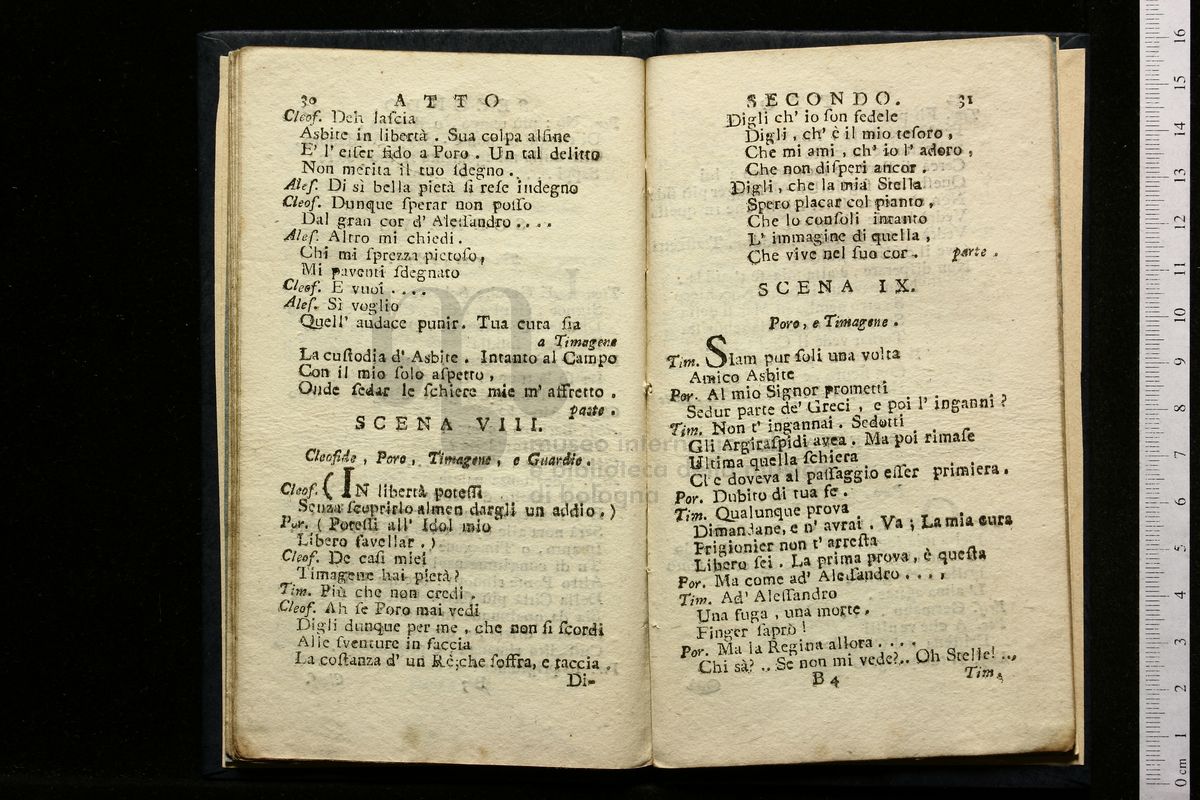 30 ATTO
Cleof. Deh laſcia
Asbite in libertà . Sua colpa alfine
E' l' eſſer fido a Poro . Un tal delitto
Non merita il tuo ſdegno .
Aleſ. Di sì bella pietà ſi reſe indegno
Cleof. Dunque ſperar non poſſo
Dal gran cor d' Aleſſandro . . . .
Aleſ. Altro mi chiedi .
Chi mi ſprezza pietoſo ,
Mi paventi ſdegnato
Cleof. E vuoi . . . .
Aleſ. Sì voglio
Quell' audace punir. Tua cura ſia
a Timagene
La cuſtodia d' Asbite . Intanto al Campo
Con il mio ſolo aſpetto ,
Onde ſedar le ſchiere mie m' affretto .
parte .
SCENA VIII.
Cleofide , Poro , Timagene , e Guardie .
Cleof. ( IN libertà poteſſi
Senza ſcoprirlo almen dargli un addio . )
Por. ( Poteſſi all' Idol mio
Libero favellar . )
Cleof. De caſi miei
Timagene hai pietà ?
Tim. Più che non credi .
Cleof. Ah ſe Poro mai vedi
Digli dunque per me , che non ſi ſcordi
Alle ſventure in faccia
La coſtanza d' un Rè;che ſoffra, e taccia .
Di-
SECONDO. 31
Digli ch' io ſon fedele
Digli , ch' è il mio teſoro ,
Che mi ami , ch' io l' adoro ,
Che non diſperi ancor .
Digli , che la mia Stella
Spero placar col pianto ,
Che lo conſoli intanto
L' immagine di quella ,
Che vive nel ſuo cor . parte .
SCENA IX.
Poro , e Timagene .
Tim. SIam pur ſoli una volta
Amico Asbite
Por. Al mio Signor prometti
Sedur parte de' Greci , e poi l' inganni ?
Tim. Non t' ingannai . Sedotti
Gli Argiraſpidi avea . Ma poi rimaſe
Ultima quella ſchiera
Che doveva al paſſaggio eſſer primiera .
Por. Dubito di tua fe .
Tim. Qualunque prova
Dimandane, e n' avrai . Va ; La mia cura
Prigionier non t' arreſta
Libero ſei . La prima prova , è queſta
Por. Ma come ad' Aleſſandro . . . .
Tim. Ad' Aleſſandro
Una fuga , una morte .
Finger ſaprò !
Por. Ma la Regina allora . . . .
Chi sà? .. Se non mi vede?.. Oh Stelle! ...
B 4 Tim.
museo
biblioteca
di bologna